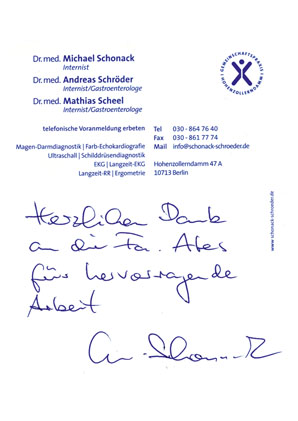 Dr. med. Michael Schonack
Internist
Dr. med. Andreas Schröder
Internist/Gastroenterologe
Dr. med. Mathias Scheel
Internist/Gastroenterologe
GEMEINSCHAFTSPRAXIS
HOHENZOLLERNDAMM
telefonische Voranmeldung erbeten
Magen-Darmdiagnostik | Farb-Echokardiografie
Ultraschall | Schilddrüsendiagnostik
EKG | Langzeit-EKG
Langzeit-RR | Ergometrie
Tel 030 - 864 76 40
Fax 030 - 861 77 74
Mail info@schonack-schroeder.de
Hohenzollerndamm 47 A
10713 Berlin
www.schonack-schroeder.de
Herzlichen Dank
an die Fa. Ates
für hervorragende
Arbeit